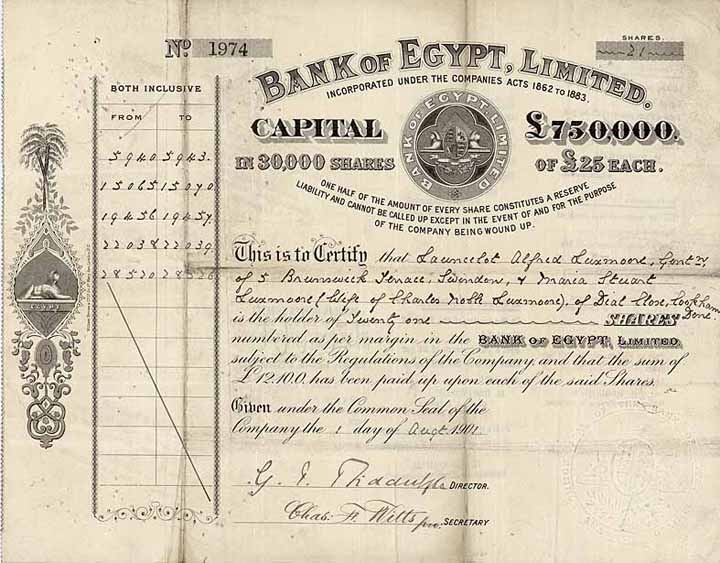 No 1974
SHARES.
21
BANK OF EGYPT, LIMITED.
INCORPORATED UNDER THE COMPANIES ACTS 1862 TO 1883.
CAPITAL £750,000.
IN 30,000 SHARES OF £25 EACH.
BANK OF EGYPT LIMITED
ONE HALF OF THE AMOUNT OF EVERY SHARE CONSTITUTES A RESERVE
LIABILITY AND CANNOT BE CALLED UP EXCEPT IN THE EVENT OF AND FOR THE PURPOSE
OF THE COMPANY BEING WOUND UP.
BOTH INCLUSIVE
FROM TO
5940 5943
15065 15070
19456 19457
22038 22039
28520 28526
EGYPT
This is to Certify that Launcelot Alfred Luxmoore, Gentn.
of 5 Brunswick Terrace, Swindon, & Maria Stuart
Luxmoore (Wife of Charles Noble Luxmoore), of Dial Close, Cookham Dene
is the holder of Twenty one SHARES
numbered as per margin in the BANK OF EGYPT, LIMITED
subject to the Regulations of the Company and that the sum of
£12.10.0. has been paid up upon each of the said Shares.
Given under the Common Seal of the
Company the 1 day of Augt. 1901
DIRECTOR.
Chas. F. Witts pro. SECRETARY